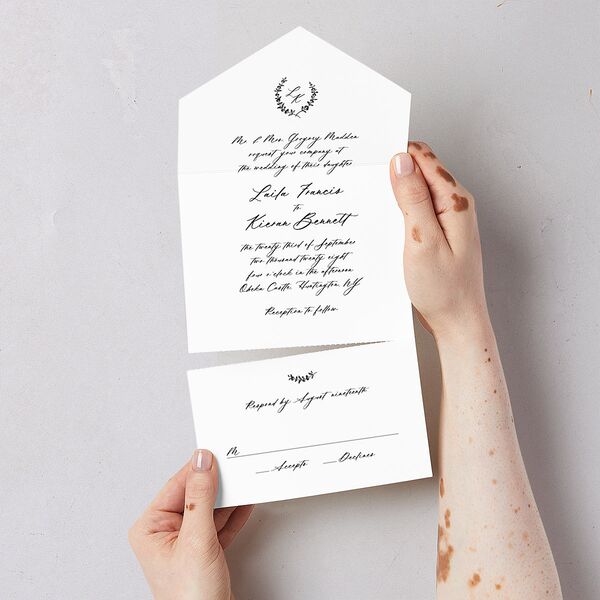 LK
Mr. & Mrs. Gregory Madden
request your company at
the wedding of their daughter
Laila Francis
to
Kieran Bennett
the twenty third of September
two thousand twenty eight
four o'clock in the afternoon
Oheka Castle, Huntington, NY
Reception to follow
Respond by August nineteenth
M
Accepts Declines